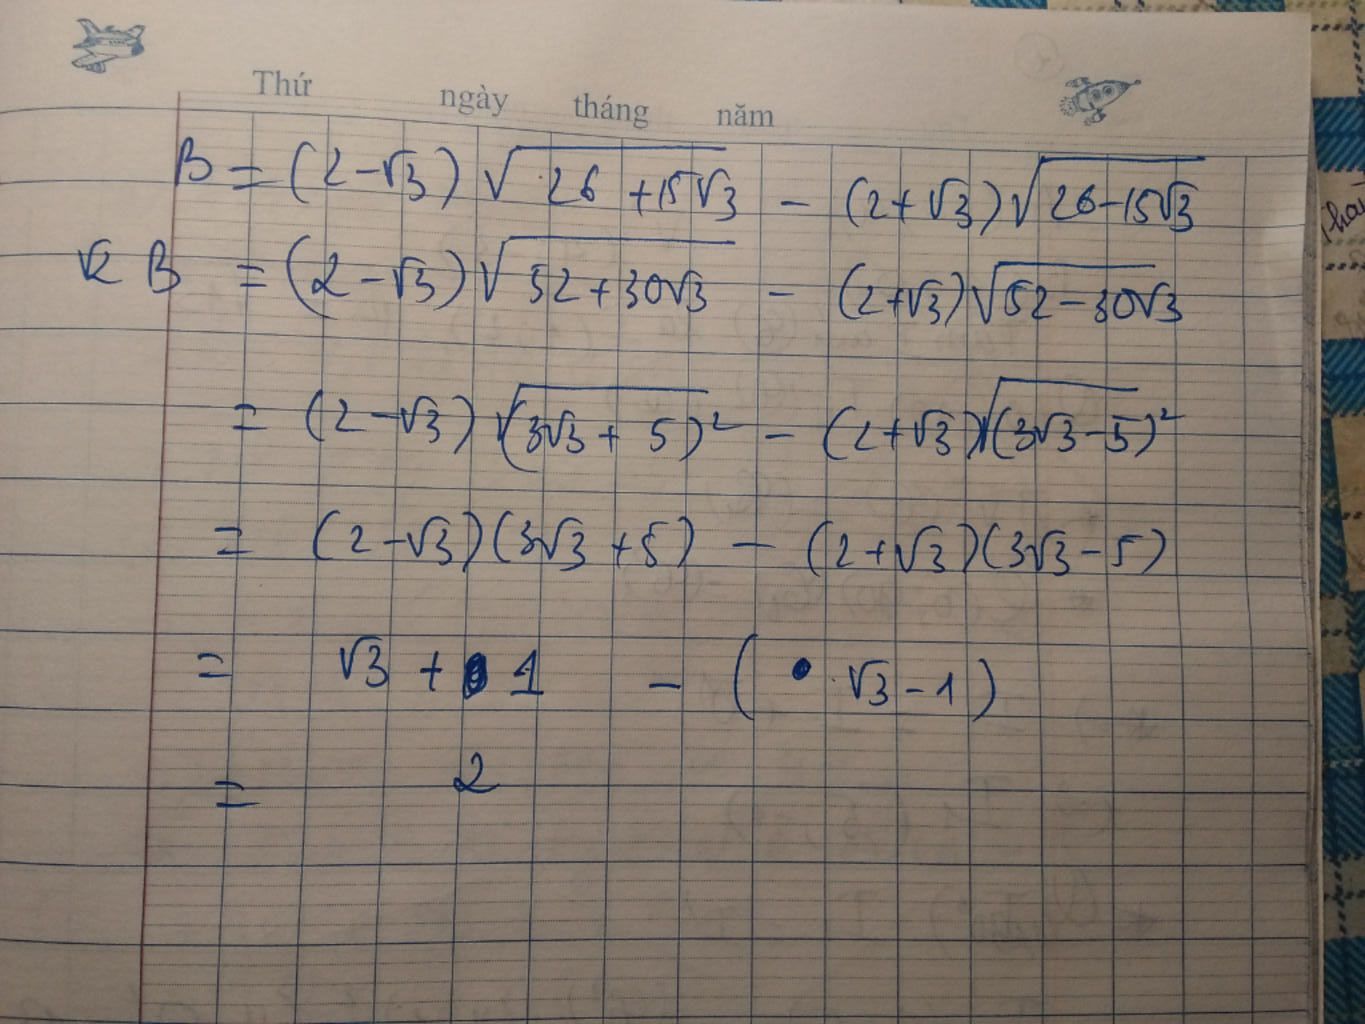 Thứ ngày tháng năm
B = (2-√3) √26+15√3 - (2+√3)√26-15√3
√2 B = (2-√3)√52+30√3 - (2+√3)√52-30√3
= (2-√3) √(3√3+5)² - (2+√3)√(3√3-5)²
= (2-√3)(3√3+5) - (2+√3)(3√3-5)
= √3 + 1 - (√3-1)
= 2